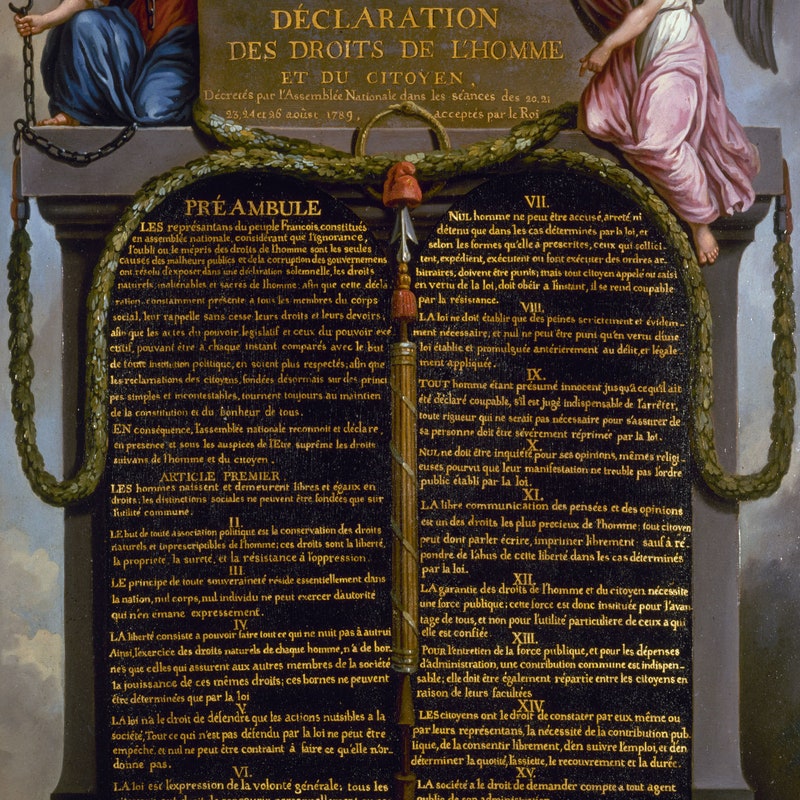 DÉCLARATION
DES DROITS DE L'HOMME
ET DU CITOYEN,
Décretés par l'Assemblée Nationale dans les séances des 20, 21
23, 24 et 26 aoûst 1789, acceptés par le Roi
PRÉAMBULE
LES représentans du peuple François, constitués
en assemblée nationale, considérant que l'ignorance,
l'oubli ou le mépris des droits de l'homme sont les seules
causes des malheurs publics et de la corruption des gouvernemens
ont résolu d'exposer dans une déclaration solemnelle, les droits
naturels, inaliénables et sacrés de l'homme: afin que cette décla
ration, constamment présente a tous les membres du corps
social, leur rappelle sans cesse leurs droits et leurs devoirs,
afin que les actes du pouvoir legislatif et ceux du pouvoir exé
cutif, pouvant être à chaque instant comparés avec le but
de toute institution politique, en soient plus respectés; afin que
les reclamations des citoyens, fondées désormais sur des princi
pes simples et incontestables, tournent toujours au maintien
de la constitution et du bonheur de tous.
EN conséquence, l'assemblée nationale reconnoit et déclare,
en presence et sous les auspices de l'Etre suprême les droits
suivans de l'homme et du citoyen.
ARTICLE PREMIER
LES hommes naissent et demeurent libres et égaux en
droits; les distinctions sociales ne peuvent être fondées que sur
l'utilité commune.
II.
LE but de toute association politique est la conservation des droits
naturels et inprescriptibles de l'homme; ces droits sont la liberté,
la propriété, la sureté, et la résistance à l'oppression.
III.
LE principe de toute souveraineté réside essentiellement dans
la nation, nul corps, nul individu ne peut exercer d'autorité
qui n'en émane expressement.
IV.
LA liberté consiste a pouvoir faire tout ce qui ne nuit pas à autrui
Ainsi, l'exercice des droits naturels de chaque homme, n'a de bor
nes que celles qui assurent aux autres membres de la société
la jouissance de ces mêmes droits; ces bornes ne peuvent
être déterminées que par la loi
V.
LA loi n'a le droit de défendre que les actions nuisibles a la
société, Tout ce qui n'est pas défendu par la loi ne peut être
empêché, et nul ne peut être contraint à faire ce qu'elle n'or-
donne pas.
VI.
LA loi est l'expression de la volonté générale; tous les
VII.
NUL homme ne peut être accusé, arreté ni
détenu que dans les cas déterminés par la loi, et
selon les formes qu'elle a prescrites, ceux qui sollici-
tent, expédient, exécutent ou font exécuter des ordres ar-
bitraires, doivent être punis; mais tout citoyen appelé ou saisi
en vertu de la loi, doit obéir a l'instant, il se rend coupable
par la résistance.
VIII.
LA loi ne doit établir que des peines strictement et évidem-
ment nécessaire, et nul ne peut être puni qu'en vertu d'une
loi établie et promulguée antérierement au délit, et légale-
ment appliquée.
IX.
TOUT homme étant présumé innocent jusqu'à ce qu'il ait
été déclaré coupable, s'il est jugé indispensable de l'arrêter,
toute rigueur qui ne serait pas nécessaire pour s'assurer de
sa personne doit être sévérement réprimée par la loi.
X.
NUL ne doit être inquiété pour ses opinions, mêmes religi
euses pourvu que leur manifestation ne trouble pas l'ordre
public établi par la loi.
XI.
LA libre communication des pensées et des opinions
est un des droits les plus precieux de l'homme; tout citoyen
peut dont parler écrire, imprimer librement: sauf à ré-
pondre de l'abus de cette liberté dans les cas déterminés
par la loi.
XII.
LA garantie des droits de l'homme et du citoyen nécessite
une force publique; cette force est donc instituée pour l'avan
tage de tous, et non pour l'utilité particuliere de ceux a qui
elle est confiée.
XIII.
POUR l'entretien de la force publique, et pour les dépenses
d'administration, une contribution commune est indispen-
sable; elle doit être également répartie entre les citoyens en
raison de leurs facultées
XIV.
LES citoyens ont le droit de constater par eux même ou
par leurs représentans, la nécessité de la contribution pub
lique, de la consentir librement, d'en suivre l'emploi, et d'en
déterminer la quotité, l'assiette, le recouvrement et la durée.
XV.
LA société a le droit de demander compte a tout agent
public de son administration.